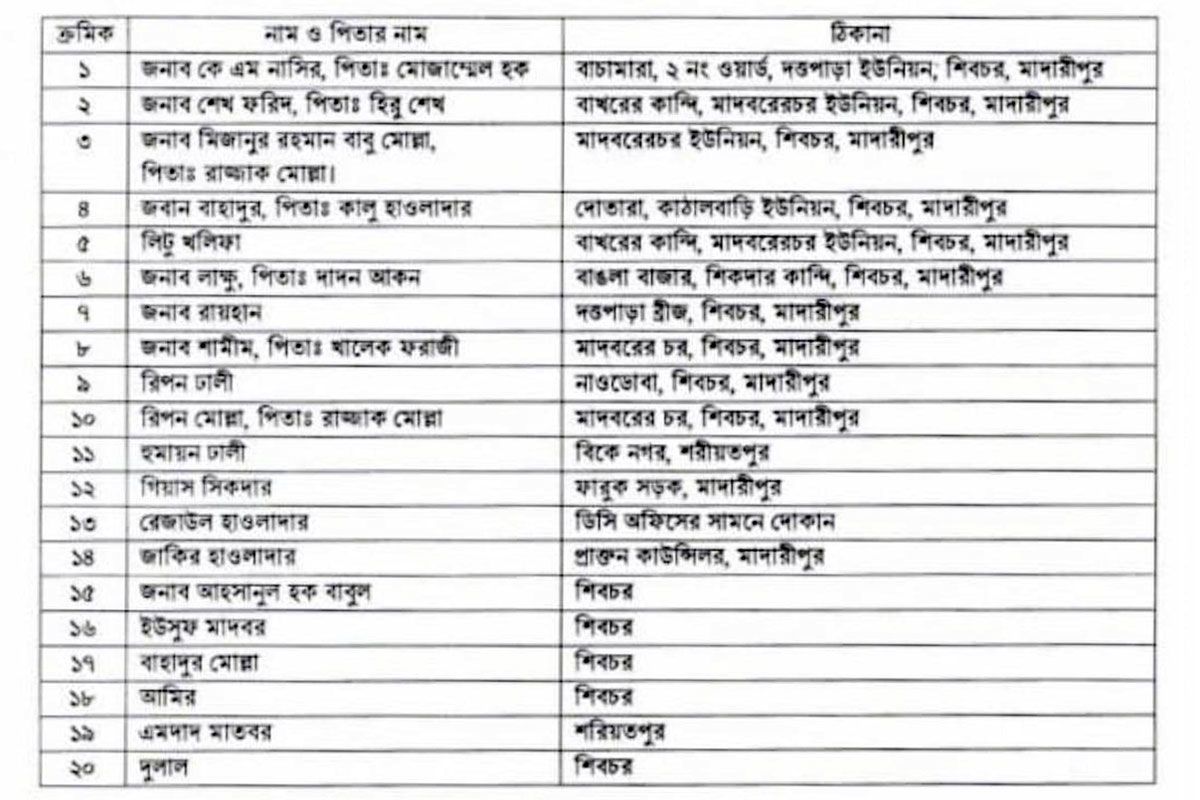 ক্রমিক নাম ও পিতার নাম ঠিকানা
১ জনাব কে এম নাসির, পিতাঃ মোজাম্মেল হক বাচামারা, ২ নং ওয়ার্ড, দত্তপাড়া ইউনিয়ন; শিবচর, মাদারীপুর
২ জনাব শেখ ফরিদ, পিতাঃ হিরু শেখ বাখরের কান্দি, মাদবরেরচর ইউনিয়ন, শিবচর, মাদারীপুর
৩ জনাব মিজানুর রহমান বাবু মোল্লা, মাদবরেরচর ইউনিয়ন, শিবচর, মাদারীপুর
পিতাঃ রাজ্জাক মোল্লা।
৪ জবান বাহাদুর, পিতাঃ কালু হাওলাদার দোতারা, কাঠালবাড়ি ইউনিয়ন, শিবচর, মাদারীপুর
৫ লিটু খলিফা বাখরের কান্দি, মাদবরেরচর ইউনিয়ন, শিবচর, মাদারীপুর
৬ জনাব লাক্ষু, পিতাঃ দাদন আকন বাঙলা বাজার, শিকদার কান্দি, শিবচর, মাদারীপুর
৭ জনাব রায়হান দত্তপাড়া ব্রীজ, শিবচর, মাদারীপুর
৮ জনাব শামীম, পিতাঃ খালেক ফরাজী মাদবরের চর, শিবচর, মাদারীপুর
৯ রিপন ঢালী নাওডোবা, শিবচর, মাদারীপুর
১০ রিপন মোল্লা, পিতাঃ রাজ্জাক মোল্লা মাদবরের চর, শিবচর, মাদারীপুর
১১ হুমায়ন ঢালী বিকে নগর, শরীয়তপুর
১২ গিয়াস সিকদার ফারুক সড়ক, মাদারীপুর
১৩ রেজাউল হাওলাদার ডিসি অফিসের সামনে দোকান
১৪ জাকির হাওলাদার প্রাক্তন কাউন্সিলর, মাদারীপুর
১৫ জনাব আহসানুল হক বাবুল শিবচর
১৬ ইউসুফ মাদবর শিবচর
১৭ বাহাদুর মোল্লা শিবচর
১৮ আমির শিবচর
১৯ এমদাদ মাতবর শরিয়তপুর
২০ দুলাল শিবচর